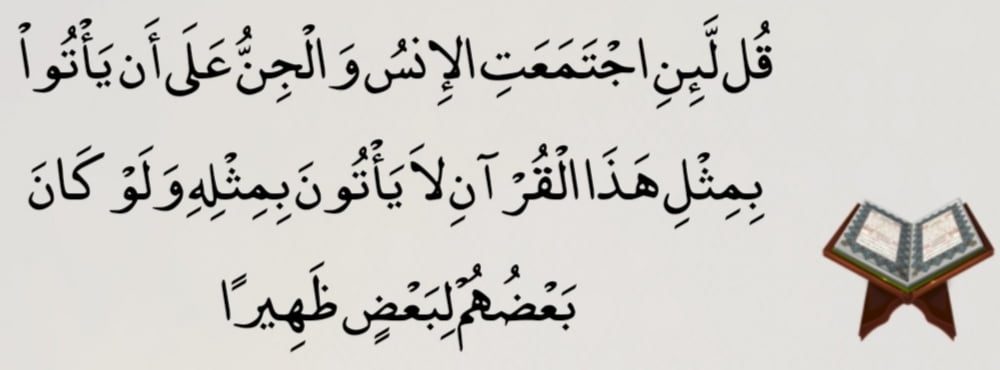 قُل لَّئِنِ اجْتَمَعَتِ الإِنسُ وَالْجِنُّ عَلَى أَن يَأْتُواْ
بِمِثْلِ هَذَا الْقُرْآنِ لاَ يَأْتُونَ بِمِثْلِهِ وَلَوْ كَانَ
بَعْضُهُمْ لِبَعْضٍ ظَهِيرًا